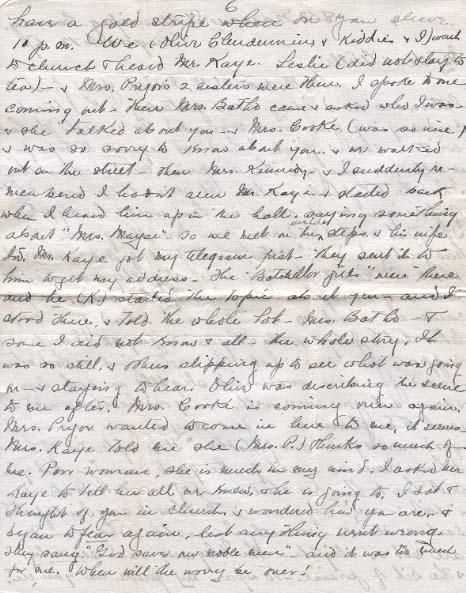 6
have a gold stripe when on you sleeve.
10 p.m. We (Olive Clendenning & Kiddies & I) went
to church & heard Mr. Kaye. Leslie (did not stay to
tea) - & Mrs. Pryor's 2 sisters were there. I spoke to one
coming out - then Mrs. Batho came & asked who I was
& she talked about you - & Mrs. Cooke (was so nice &
& was so sorry to know about you. & we walked
out on the street - then Mrs. Kennedy - & I suddenly re-
membered I hadn't seen Mr. Kaye & started back
when I heard him up in the hall. saying something
about "Mrs. Mayse" so we met on the inside steps & his wife
too. Mr. Kaye got my telegram first - they sent it to
him to get my address - The "Batchellor girls" were there
and he (K) started the topic about you - and I
stood there & told the whole lot - Mrs. Batho - &
some I did not know & all - the whole story. It
was so still, & others slipping up to see what was going
on - & staying to hear. Olive was describing the scene
to me after. Mrs. Cooke is coming over again.
Mrs. Pryor wanted to come in here to me, it seems
Mrs. Kaye told me "she (Mrs. P.) thinks so much of
me. Poor woman, she is much in my mind. I asked Mr
Kaye to tell her all we knew, & he is going to, I sat &
thought of you in church & wondered how you are, &
began to fear again, lest anything went wrong.
They sang "God save our noble men" and it was too much
for me. When will the worry be over!